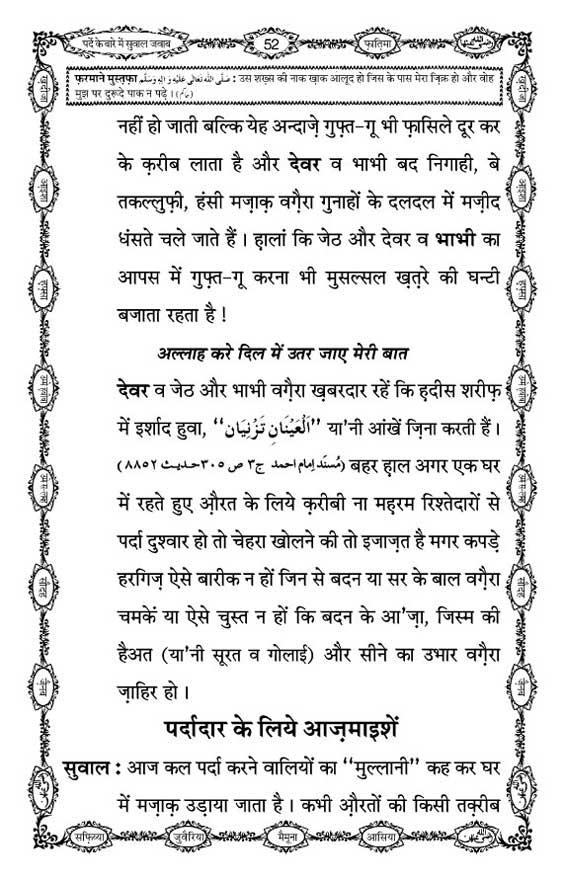 पर्दे के बारे में सुवाल जवाब
52
फ़ातिमा
फ़रमाने मुस्तफ़ा صَلَّى اللهُ تَعَالٰى عَلَيْهِ وَاٰلِهٖ وَسَلَّم : उस शख़्स की नाक ख़ाक आलूद हो जिस के पास मेरा ज़िक्र हो और वोह
मुझ पर दुरूदे पाक न पढ़े । (حاكم)
नहीं हो जाती बल्कि येह अन्दाज़े गुफ़्त-गू भी फ़ासिले दूर कर
के क़रीब लाता है और देवर व भाभी बद निगाही, बे
तकल्लुफ़ी, हंसी मज़ाक़ वग़ैरा गुनाहों के दलदल में मज़ीद
धंसते चले जाते हैं । हालां कि जेठ और देवर व भाभी का
आपस में गुफ़्त-गू करना भी मुसल्सल ख़तरे की घन्टी
बजाता रहता है !
अल्लाह करे दिल में उतर जाए मेरी बात
देवर व जेठ और भाभी वग़ैरा ख़बरदार रहें कि हदीस शरीफ़
में इर्शाद हुवा, ‘‘اَلْعَيْنَانِ تَزْنِيَان’’ या’नी आंखें ज़िना करती हैं ।
(مُسنَد امام احمد ج٣ ص ٣٠٥ حديث ٨٨٥٢) बहर हाल अगर एक घर
में रहते हुए औ़रत के लिये क़रीबी ना महरम रिश्तेदारों से
पर्दा दुश्वार हो तो चेहरा खोलने की तो इजाज़त है मगर कपड़े
हरगिज़ ऐसे बारीक न हों जिन से बदन या सर के बाल वग़ैरा
चमकें या ऐसे चुस्त न हों कि बदन के आ’ज़ा, जिस्म की
हैअत (या’नी सूरत व गोलाई) और सीने का उभार वग़ैरा
ज़ाहिर हो ।
पर्दादार के लिये आज़माइशें
सुवाल : आज कल पर्दा करने वालियों का ‘‘मुल्लानी’’ कह कर घर
में मज़ाक़ उड़ाया जाता है । कभी औ़रतों की किसी तक़्रीब
सफ़िय्या
जुवैरिया
मैमूना
आसिया